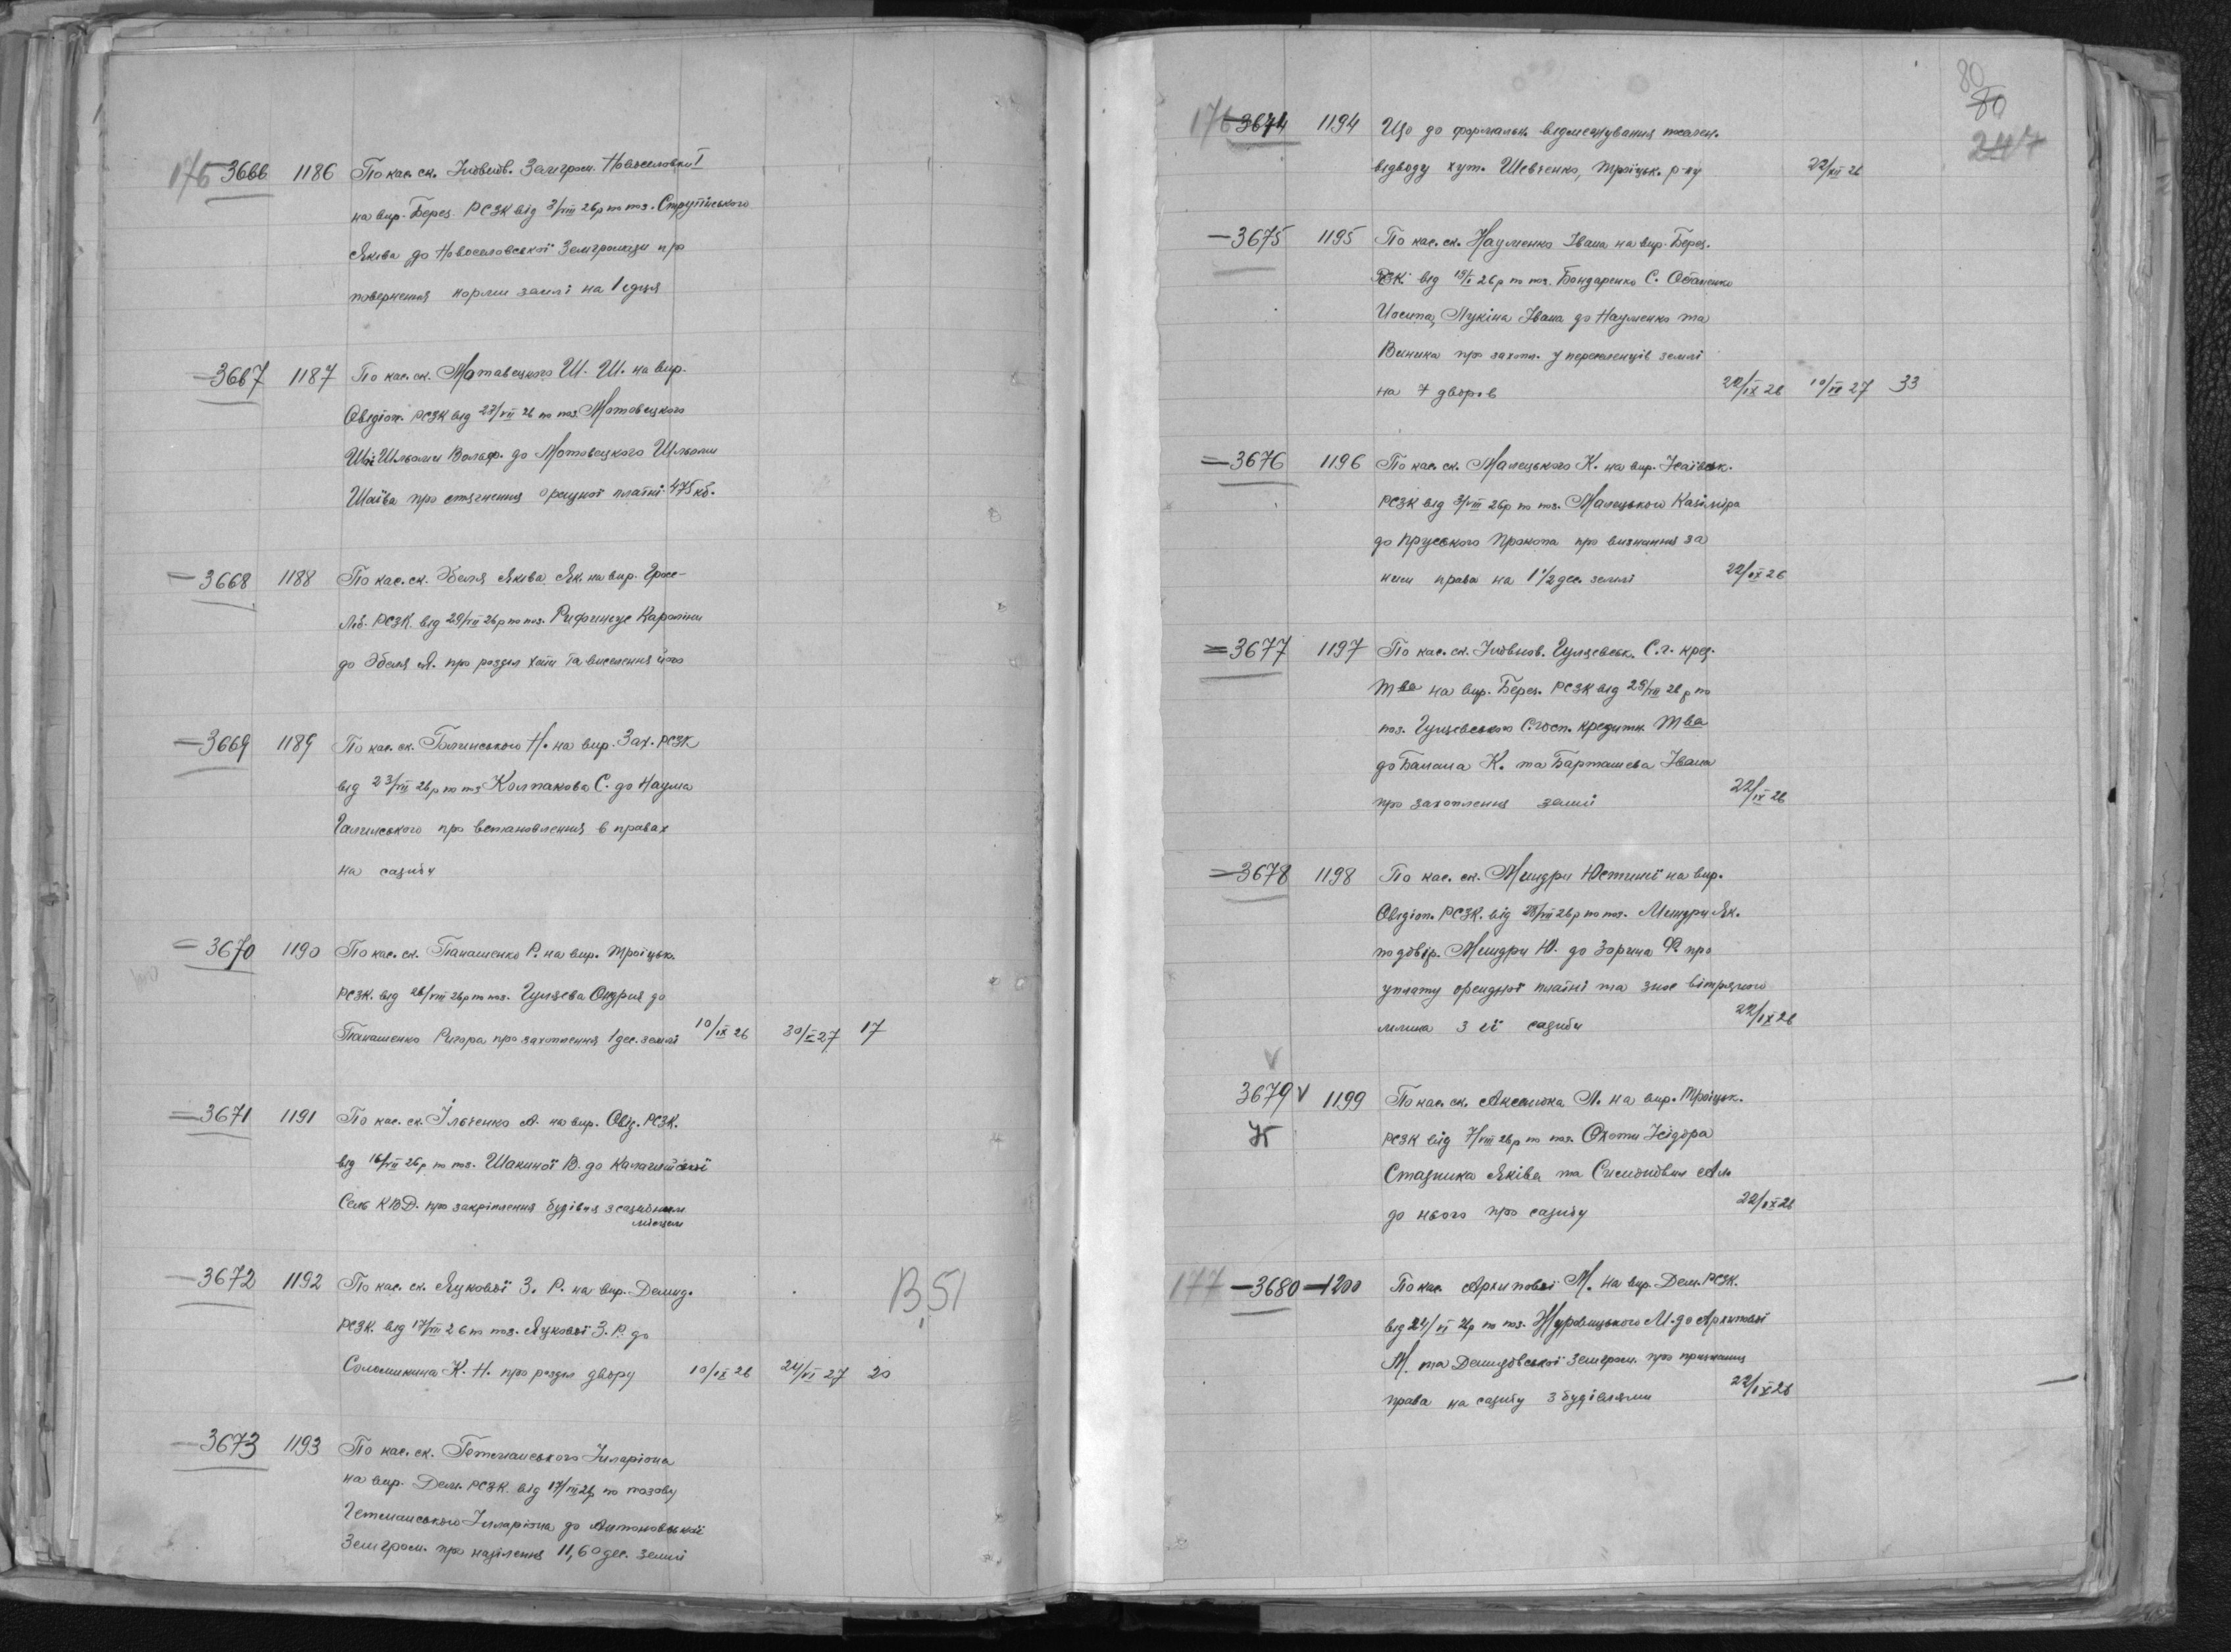 176 3666 1186 По кас. ск. Земгром. Новоселовки I
на вир. Берез. РСЗК від 3/VIII 26р по поз. Струтінського
Якова до Новоселовської Земгромади про
повернення норми землі на 1 едця
3667 1187 По кас. ск. Мотавецкого Ш. Ш. на вир.
Овідіоп. РСЗК від 27/VII 26 по поз. Мотовецкого
Шльоми Вольф. до Мотовецкого Шльоми
Шаїва про стягнення орендної платні 475 кб.
3668 1188 По кас. ск. Эбеля Якова Як. на вир. Грос-
Ліб. РСЗК від 29/VII 26р по поз. Рифиньус Кароліни
до Эбеля Я. про розділ хати та виселення його
3669 1189 По кас. ск. Галинського Н. на вир. Зах. РСЗК
від 23/VII 26р по поз Колпакова С. до Наума
Галинського про встановлення в правах
на садибу
3670 1190 По кас. ск. Панашенко Р. на вир. Троїцьк.
РСЗК від 26/VIII 26р по поз. Гуляева Ондрія до
Панашенко Ригора про захоплення 1 дес. землі 10/IX 26 30/V 27 17
3671 1191 По кас. ск. Ільченко А. на вир. Овід. РСЗК.
від 16/VII 26р по поз. Шакиної В. до
Сель КВД. про закріплення будівля з садибним
місцем
3672 1192 По кас. ск. Яцкової З. Р. на вир. Демид.
РСЗК. від 17/VIII 26 по поз. Яцкової З. Р. до
Соломикина К. Н. про розділ двору 10/IX 26 24/VI 27 20
В, 51
3673 1193 По кас. ск. Гетманського Іларіона
на вир. Дем. РСЗК від 17/VII 26р по позову
Гетманського Іларіона до Антоновської
Земгром. про наділення 11,60 дес. землі
80
80
247
176 3674 1194 Що до формальн. відмежування
відводу хут. Шевченко, Троїцьк. р-ну 22/XII 26
3675 1195 По кас. ск. Науменко Івана на вир. Берез.
РЗК від 26р по поз. Бондаренко С. Остапенко
Йосипа, Лукіна Івана до Науменко та
Винника про захопл. у переселенців землі
на 7 дворів 22/IX 26 10/VI 27 33
3676 1196 По кас. ск. Малецького К. на вир. Ісаївськ.
РСЗК від 3/VIII 26р по поз. Малецького Казіміра
до Пруського Прокопа про визнання за
ним права на 1 1/2 дес. землі 22/IX 26
3677 1197 По кас. ск. Гуляєвськ. С.г. кред.
Тва на вир. Берез. РСЗК від 28/VII 26 р по
поз. Гуляєвського С.госп. кредитн. Тва
до Балана К. та Барташева Івана
про захоплення землі 22/IX 26
3678 1198 По кас. ск. Мундри Юстинії на вир.
Овідіоп. РСЗК. від 28/VII 26р по поз. Мундри Як.
по довір. Мундри Ю. до Зорина Ф. про
уплату орендної платні та знос вітряного
млина з її садиби 22/IX 26
V
3679 V 1199 По кас. ск. Аксанюка Л. на вир. Троїцьк.
РСЗК від 7/VIII 26р по поз. Охоти Ісідора
Стадника Яківа та Симонович Ал.
до нього про садибу 22/IX 26
177 3680 1200 По кас. Архипової М. на вир. Дем. РСЗК.
від 24/VI 26р по поз. Журавицького М. до Архипової
М. та Демидовської земгром. про признання
права на садибу з будівлями 22/IX 26